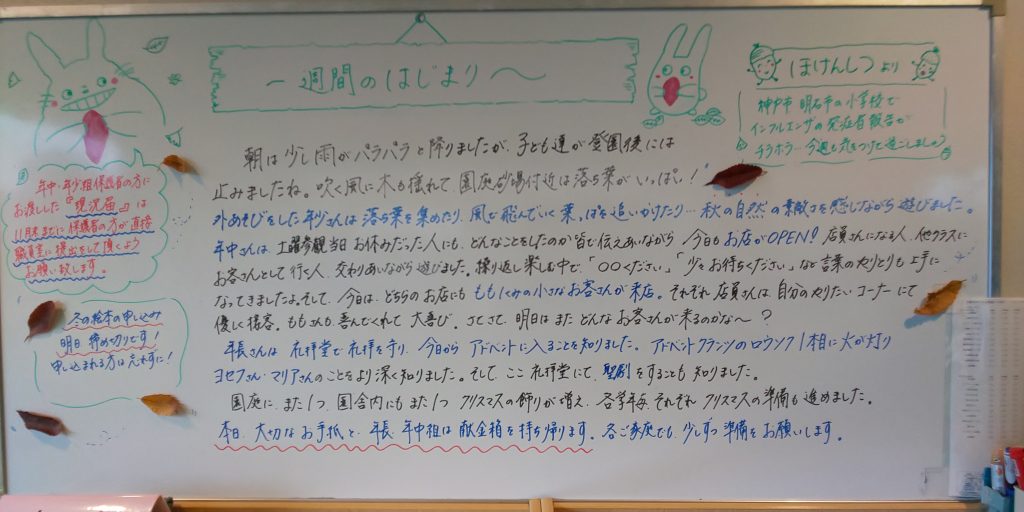 一週間のはじまり〜
朝は少し雨がパラパラと降りましたが、子ども達が登園後には
止みましたね。吹く風に木も揺れて、園庭砂場付近は落ち葉がいっぱい!
外あそびをした年少さんは落ち葉を集めたり、風で飛んでいく葉っぱを追いかけたり…秋の自然の素敵さを感じながら遊びました。
年中さんは土曜参観当日お休みだった人にも、どんなことをしたのか皆で伝えあいながら今日もお店がOPEN!店員さんになる人、他クラスに
お客さんとして行く人、交わりあいながら遊びました。繰り返し楽しむ中で、「〇〇ください」「少々お待ちください」など言葉のやりとりも上手に
なってきましたよ。そして、今日は、どちらのお店にもももぐみの小さなお客さんが来店。それぞれ店員さんは、自分のやりたいコーナーにて
優しく接客。ももさんも喜んでくれて大喜び。さてさて、明日はまたどんなお客さんが来るのかな〜?
年長さんは礼拝堂で礼拝を守り、今日からアドベントに入ることを知りました。アドベントクランツのロウソク1本目に火が灯り
ヨセフさん・マリアさんのことをより深く知りました。そして、ここ礼拝堂にて、聖劇をすることも知りました。
園庭に、また1つ、園舎内にもまた1つクリスマスの飾りが増え、各学年毎、それぞれクリスマスの準備も進めました。
本日、大切なお手紙と、年長、年中組は献金箱を持ち帰ります。各ご家庭でも、少しずつ準備をお願いします。
年中・年少組保護者の方に
お渡しした『現況届』は
11月末までに保護者の方が直接
職員室に提出をして頂くよう
お願い致します。
冬の絵本の申し込み
明日締め切りです!
申し込まれる方は忘れずに!
ほけんしつより
神戸市 明石市の小学校で
インフルエンザの発症者報告が
チラホラ…今週も気をつけて過ごしましょう